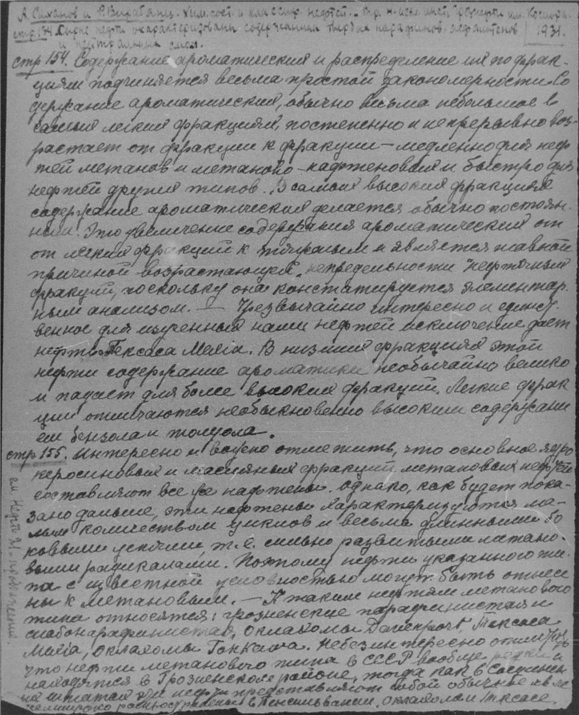 А. Саханов и Р. Вирабянц. Хим. сост. и классиф. нефтей.
1931.
стр. 154. Содержание ароматических и распределение их по фрак-
циям подчиняется весьма простой закономерности. Со-
держание ароматических, обычно весьма небольшое в
самых легких фракциях, постепенно и непрерывно воз-
растает от фракции к фракции — медленно для неф-
тей метановых и метаново-нафтеновых и быстро для
нефтей других типов. В самых высоких фракциях
содержание ароматических делается обычно постоян-
ным. Это увеличение содержания ароматических от
от легких фракций к и является главной
причиной возрастающей "непредельности" нефтяных
фракций, поскольку она констатируется элементар-
ным анализом. — Чрезвычайно интересно и единст-
венное для изученных нами нефтей исключение дает
нефть Тексаса Мехіа. В низших фракциях этой
нефти содержание ароматики необычайно велико
и падает для более высоких фракций. Легкие фрак-
ции отличаются необыкновенно высоким содержани-
ем бензола и толуола.
стр. 155. Интересно и важно отметить, что основное ядро
керосиновых и масляных фракций метановых нефтей
составляют все же нафтены. Однако, как будет пока-
зано дальше, эти нафтены характеризуются ма-
лым количеством циклов и весьма длинными бо-
ковыми цепями, т.е. сильно развитыми метано-
выми радикалами. Поэтому нефти указанного ти-
па с известной условностью могут быть отнесе-
ны к метановым. — К таким нефтям метанового
типа относятся: грозненские парафинистая и
слабопарафинистая, Оклахомы Davenport, Тексаса
Мехіа, Оклахомы Тонкава. Небезинтересно отметить,
что нефти метанового типа в СССР вообще
находятся в Грозненском районе, тогда как в Соединен-
ных штатах эти нефти представляют собой обычное явле-
распространение в Пенсильвании, Оклахоме и Тексасе.